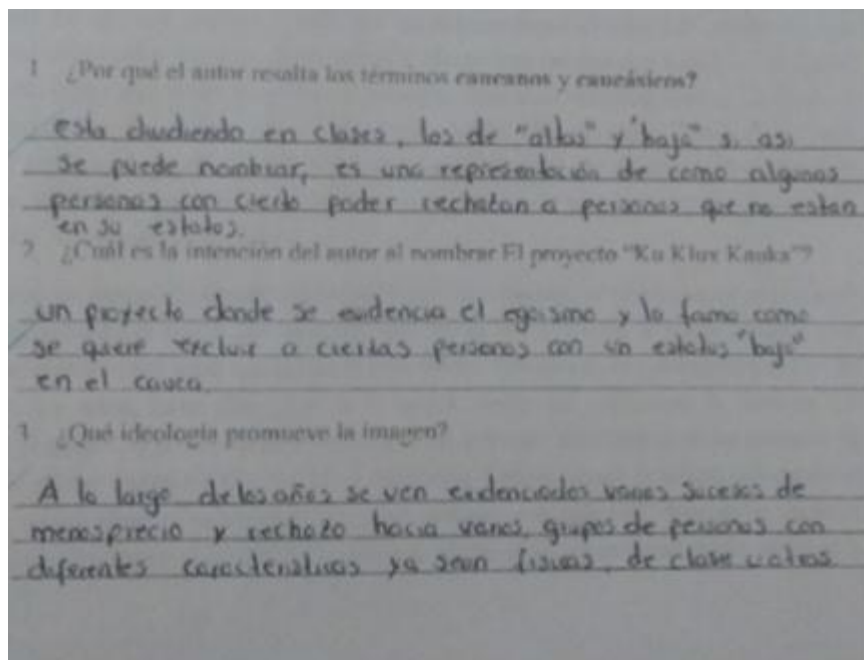 1 ¿Por qué el autor resalta los términos caucanos y caucásicos?
esta dividiendo en clases, los de "altas" y "baja" si asi
se puede nombrar, es una representación de como algunas
personas con cierto poder rechazan a personas que no estan
en su estatos.
2 ¿Cuál es la intención del autor al nombrar El proyecto "Ku Klux Kauka"?
un proyecto donde se evidencia el egoismo y la fama como
se quiere excluir a ciertas personas con un estatus "bajo"
en el cauca.
3 ¿Qué ideología promueve la imagen?
A lo largo de los años se ven evidenciados varios sucesos de
menosprecio y rechazo hacia varios grupos de personas con
diferentes caracteristicas ya sean fisicas, de clase u otras